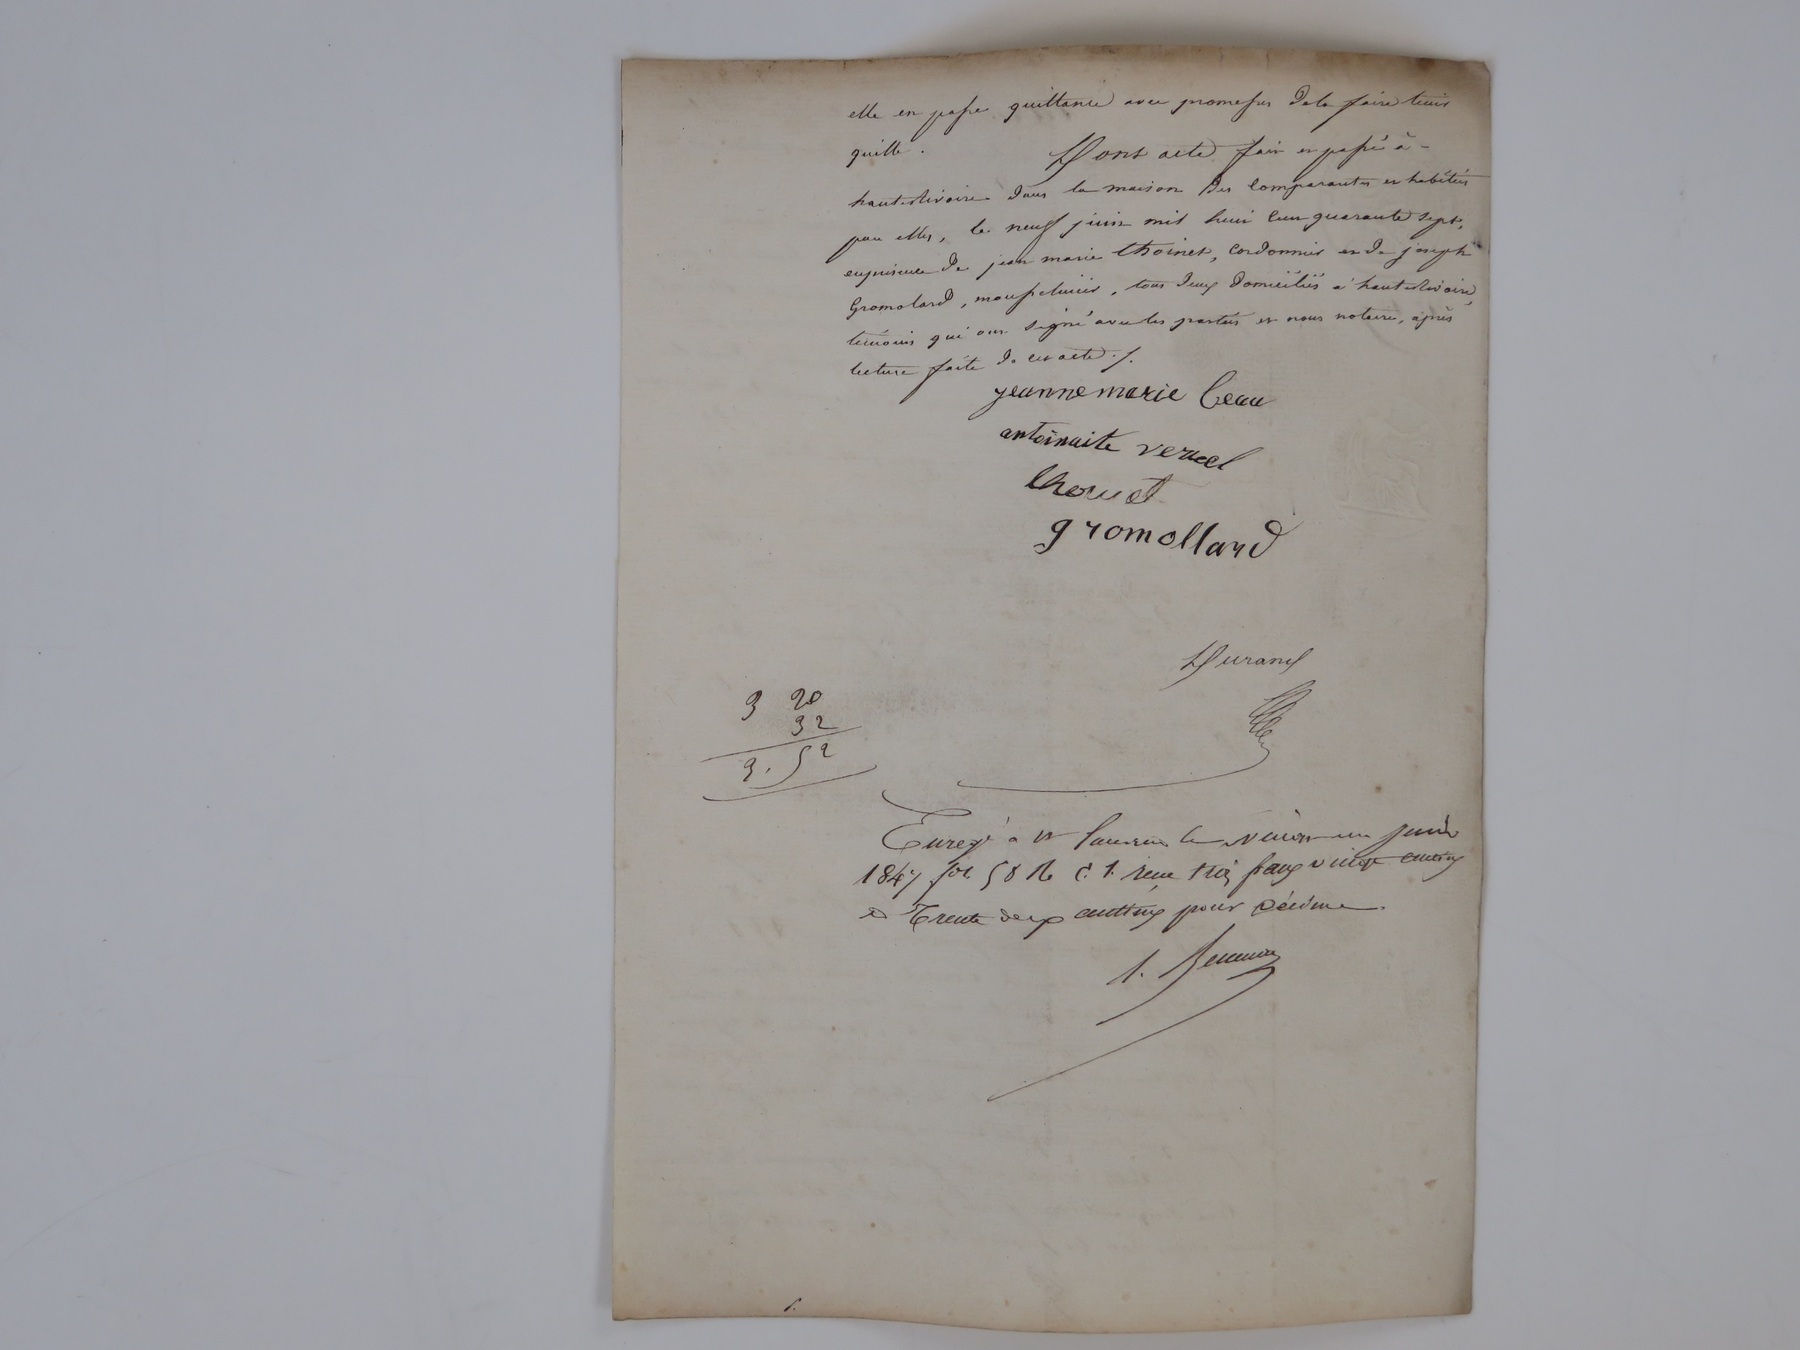 elle en passe quittance avec promesse de la faire tenir
quitte.
Dont acte fait et passé à -
haute Rivoire dans la maison des comparantes et habitée
par elles, le neuf juin mil huit cent quarante sept,
en présence de jean marie Thoinet, cordonnier et de joseph
Gromolard, tous deux domiciliés à haute Rivoire,
témoins qui ont signé avec les parties et nous notaire, après
lecture faite de cet acte ./.
jeanne marie
antoinaite vernel
thoinet
gromollard
Durand
3 20
32
3. 52
Enregé à St Laurent le vingt un juin
1847 fol. 58 Ro C. 1. reçu trois francs vingt centimes
et Trente deux centimes pour décime.